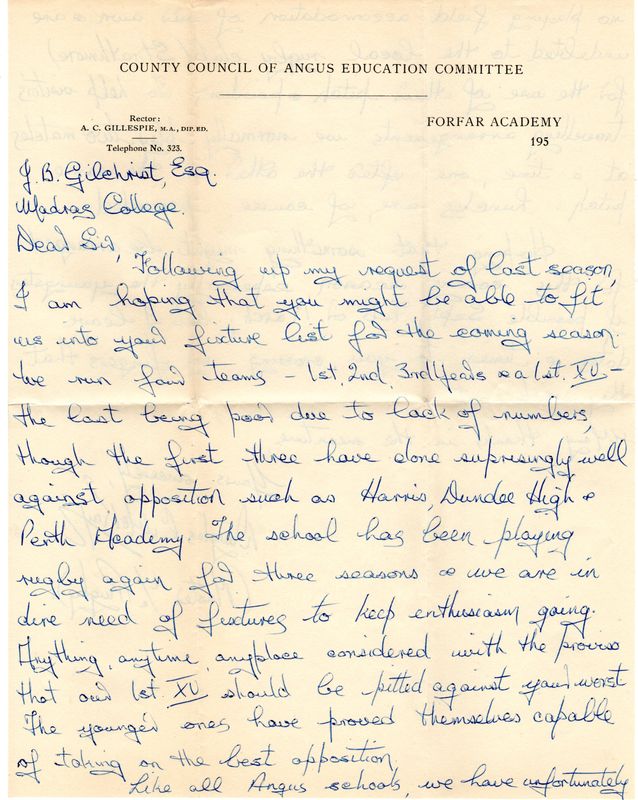 COUNTY COUNCIL OF ANGUS EDUCATION COMMITTEE
Rector:
A. C. GILLESPIE, M.A., DIP.ED.
Telephone No. 323.
FORFAR ACADEMY
195
J B. Gilchrist, Esq.
Madras College.
Dear Sir,
Following up my request of last season,
I am hoping that you might be able to fit
us into your fixture list for the coming season.
We run four teams – 1st, 2nd, 3rd Years & a 1st. XV –
the last being poor due to lack of numbers,
though the first three have done suprisingly well
against opposition such as Harris, Dundee High &
Perth Academy. The school has been playing
rugby again for three seasons & we are in
dire need of fixtures to keep enthusiasm going.
Anything, anytime, anyplace considered with the proviso
that our 1st. XV should be pitted against your worst
The younger ones have proved themselves capable
of taking on the best opposition.
Like all Angus schools, we have unfortunately